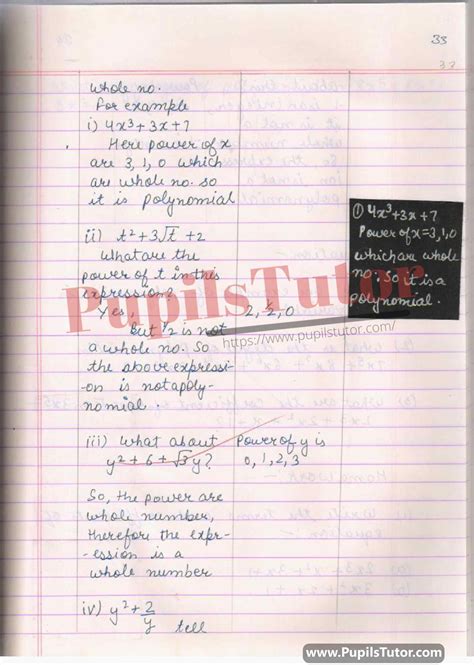 33
38
whole no.
For example
i) 4x³+3x+7
Here power of x
are 3, 1, 0 which
are whole no. so
it is polynomial
① 4x³+3x+7
Power of x=3,1,0
which are whole
no. So it is a
polynomial.
ii) t²+3√t +2
What are the
power of t in this
expression?
Yes, 2, ½, 0
but ½ is not
a whole no. So
the above expressi-
on is not a poly-
nomial.
PupilsTutor
https://www.pupilstutor.com/
iii) What about Power of y is
y²+6+√3y? 0, 1, 2, 3
So, the power are
whole number,
therefore the expr-
ession is a
whole number
iv) y²+2/y tell
www.PupilsTutor.Com